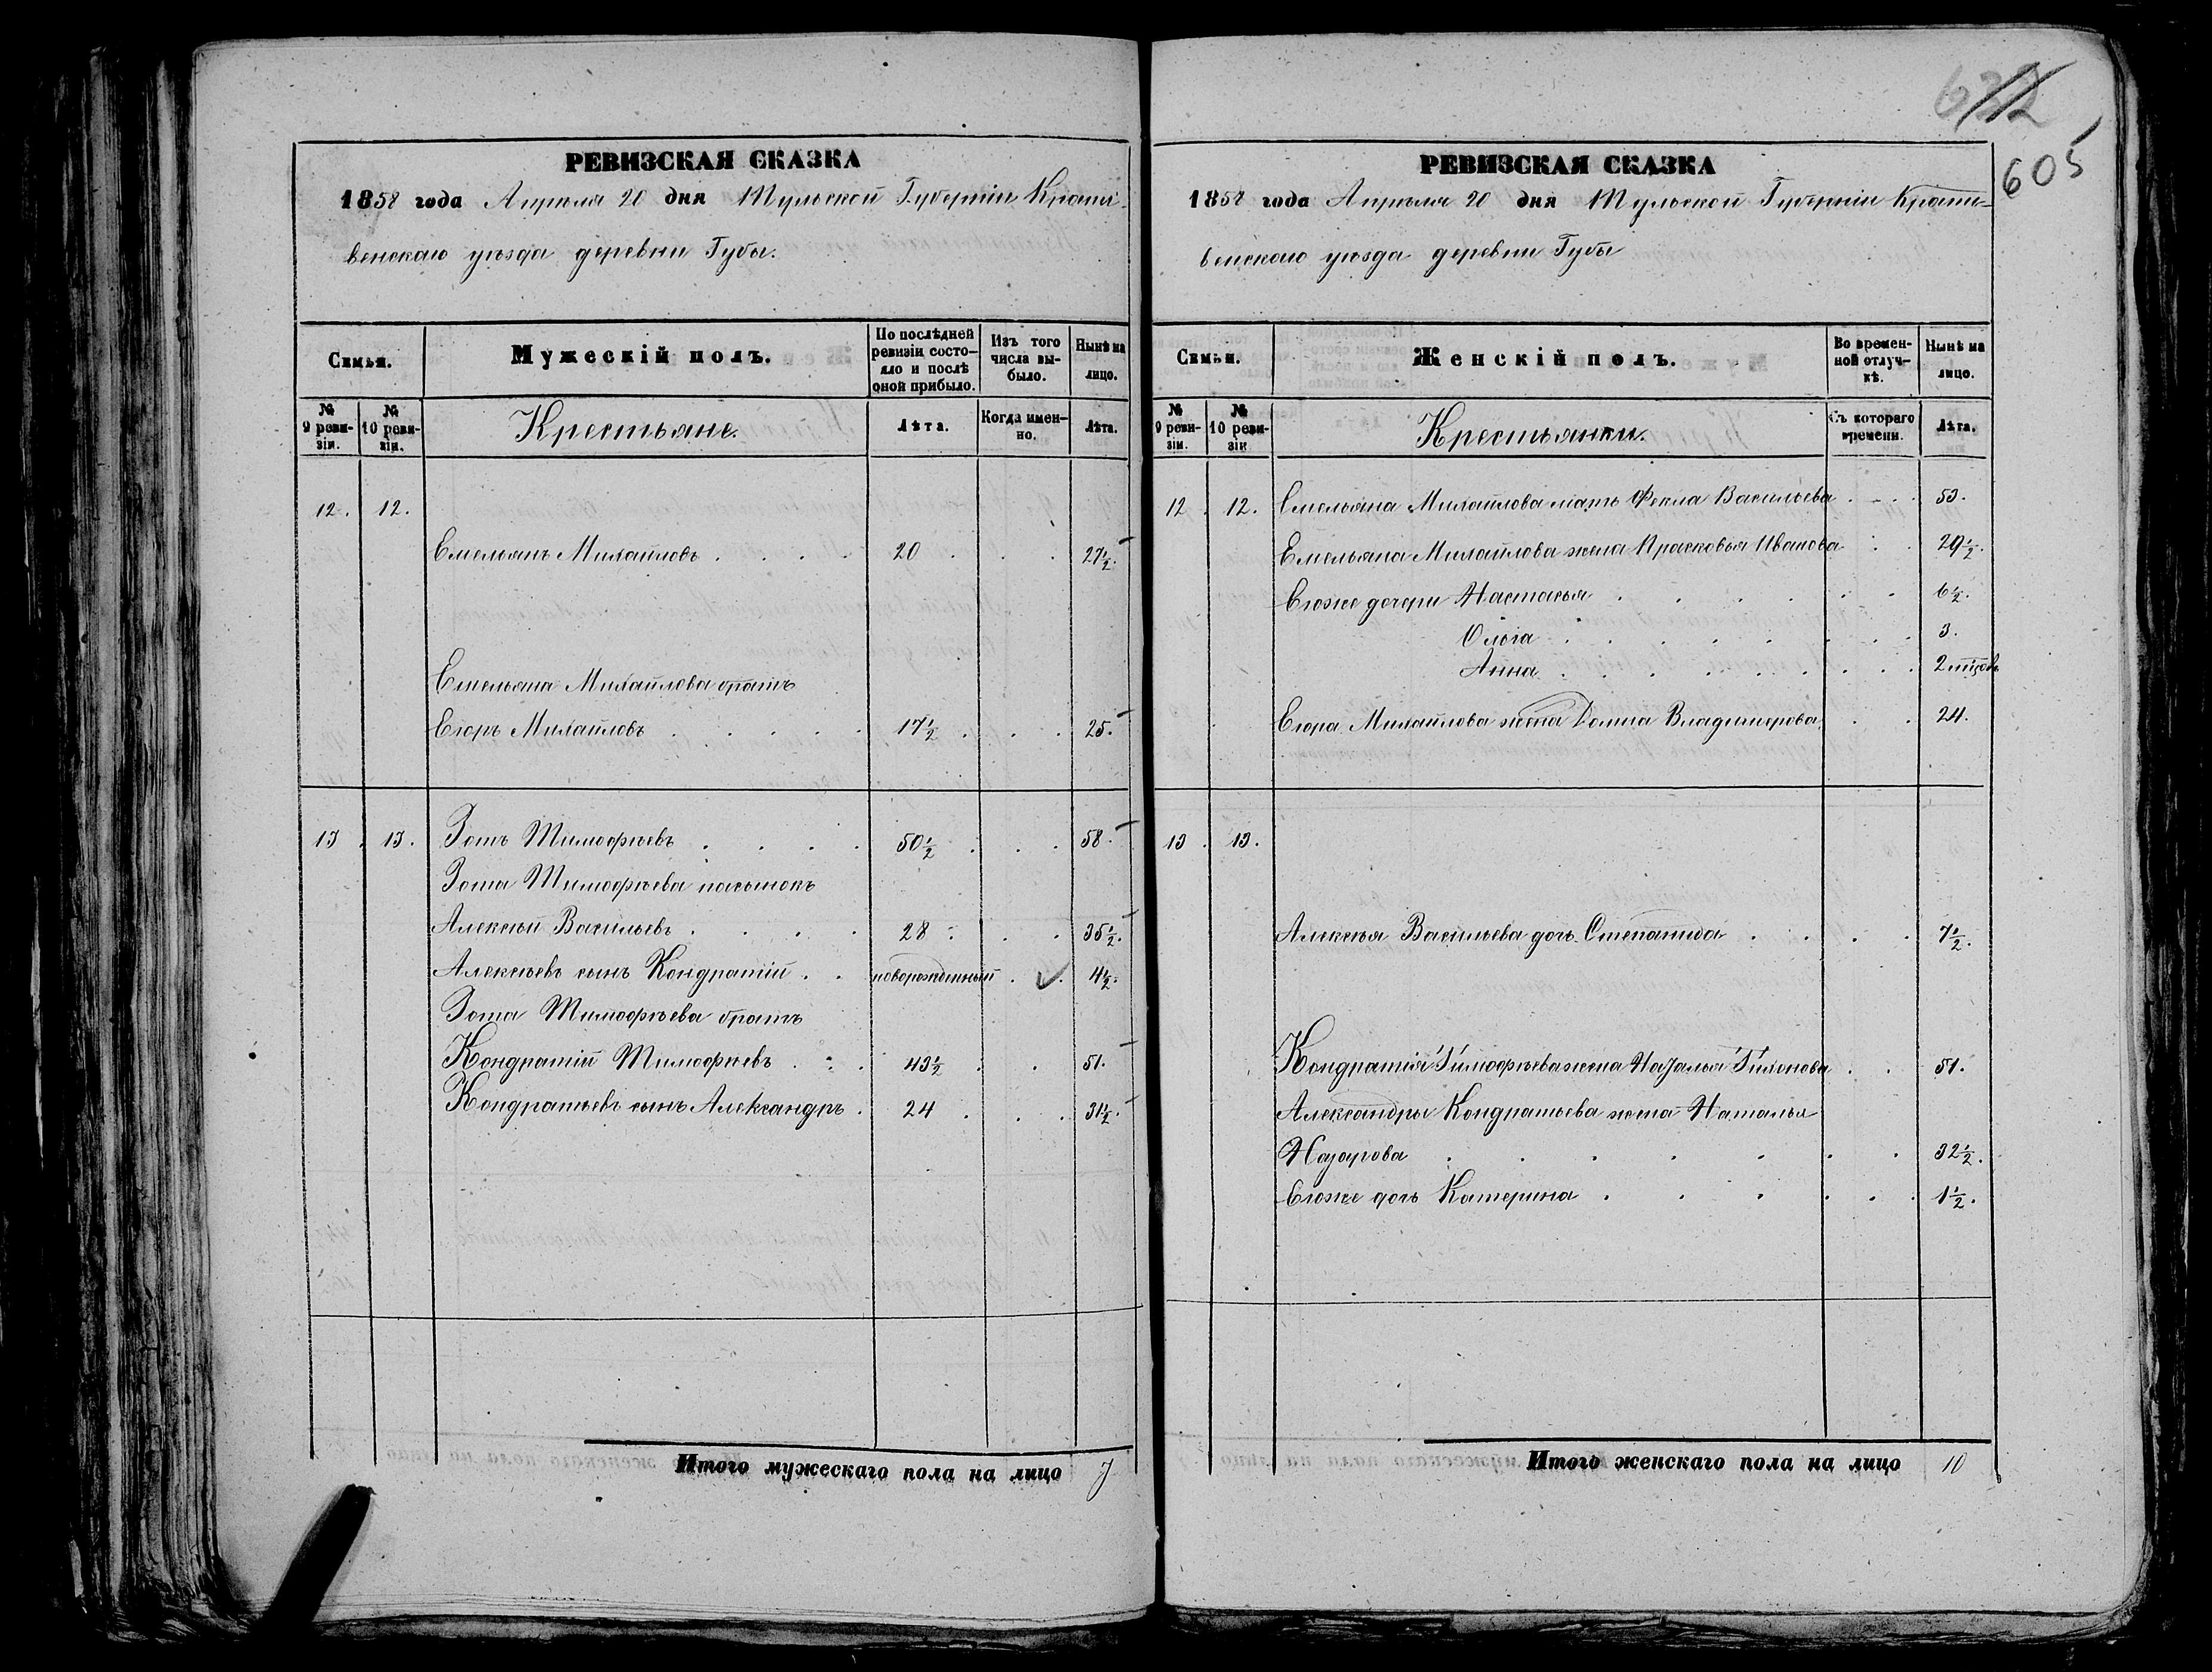 РЕВИЗСКАЯ СКАЗКА
1858 года Апрѣля 20 дня Тульской Губерніи Крапи-
венскаго уѣзда деревни Губы.
Семьи.
Мужескій полъ.
По послѣдней ревизіи состо-яло и послѣ оной прибыло.
Изъ того числа вы-было.
Нынѣ на лицо.
№ 9 реви-зіи.
№ 10 реви-зіи.
Крестьяне.
Лѣта.
Когда имен-но.
Лѣта.
12. 12.
Емельянъ Михайловъ . . . . 20 . . . 27½.
Емельяна Михайлова братъ
Егоръ Михайловъ . . . . . 17½ . . . 25.
13. 13. Зотъ Тимофѣевъ . . . . 50½ . . . 58.
Зота Тимофѣева пасынокъ
Алексѣй Васильевъ . . . . 28 . . . 35½.
Алексѣевъ сынъ Кондратій . . новорожденный . . 4½.
Зота Тимофѣева братъ
Кондратій Тимофѣевъ . . . 43½ . . 51.
Кондратьевъ сынъ Александръ . 24 . . . 31½.
Итого мужескаго пола на лицо 7
622
605
РЕВИЗСКАЯ СКАЗКА
1858 года Апрѣля 20 дня Тульской Губерніи Крапи-
венскаго уѣзда деревни Губы
Семьи.
Женскій полъ.
Во времен-ной отлуч-кѣ.
Нынѣ на лицо.
№ 9 реви-зіи.
№ 10 реви-зіи
Крестьянки.
Съ котораго времени.
Лѣта.
12. 12. Емельяна Михайлова мать Фекла Васильева . . . 53.
Емельяна Михайлова жена Прасковья Иванова . . 29½.
Его же дочери Настасья . . . . . . 6½.
Ольга . . . . . . . . 3.
Анна . . . . . . . . 2 мѣсов.
Егора Михайлова жена Домна Владимерова . . 24.
13. 13.
Алексѣя Васильева дочь Степанида . . . . 7½.
Кондратія Тимофѣева жена Наталья Тихонова . . 51.
Александры Кондратьева жена Наталья
Назарова . . . . . . . 32½.
Его же дочь Катерина . . . . . . 1½.
Итого женскаго пола на лицо 10